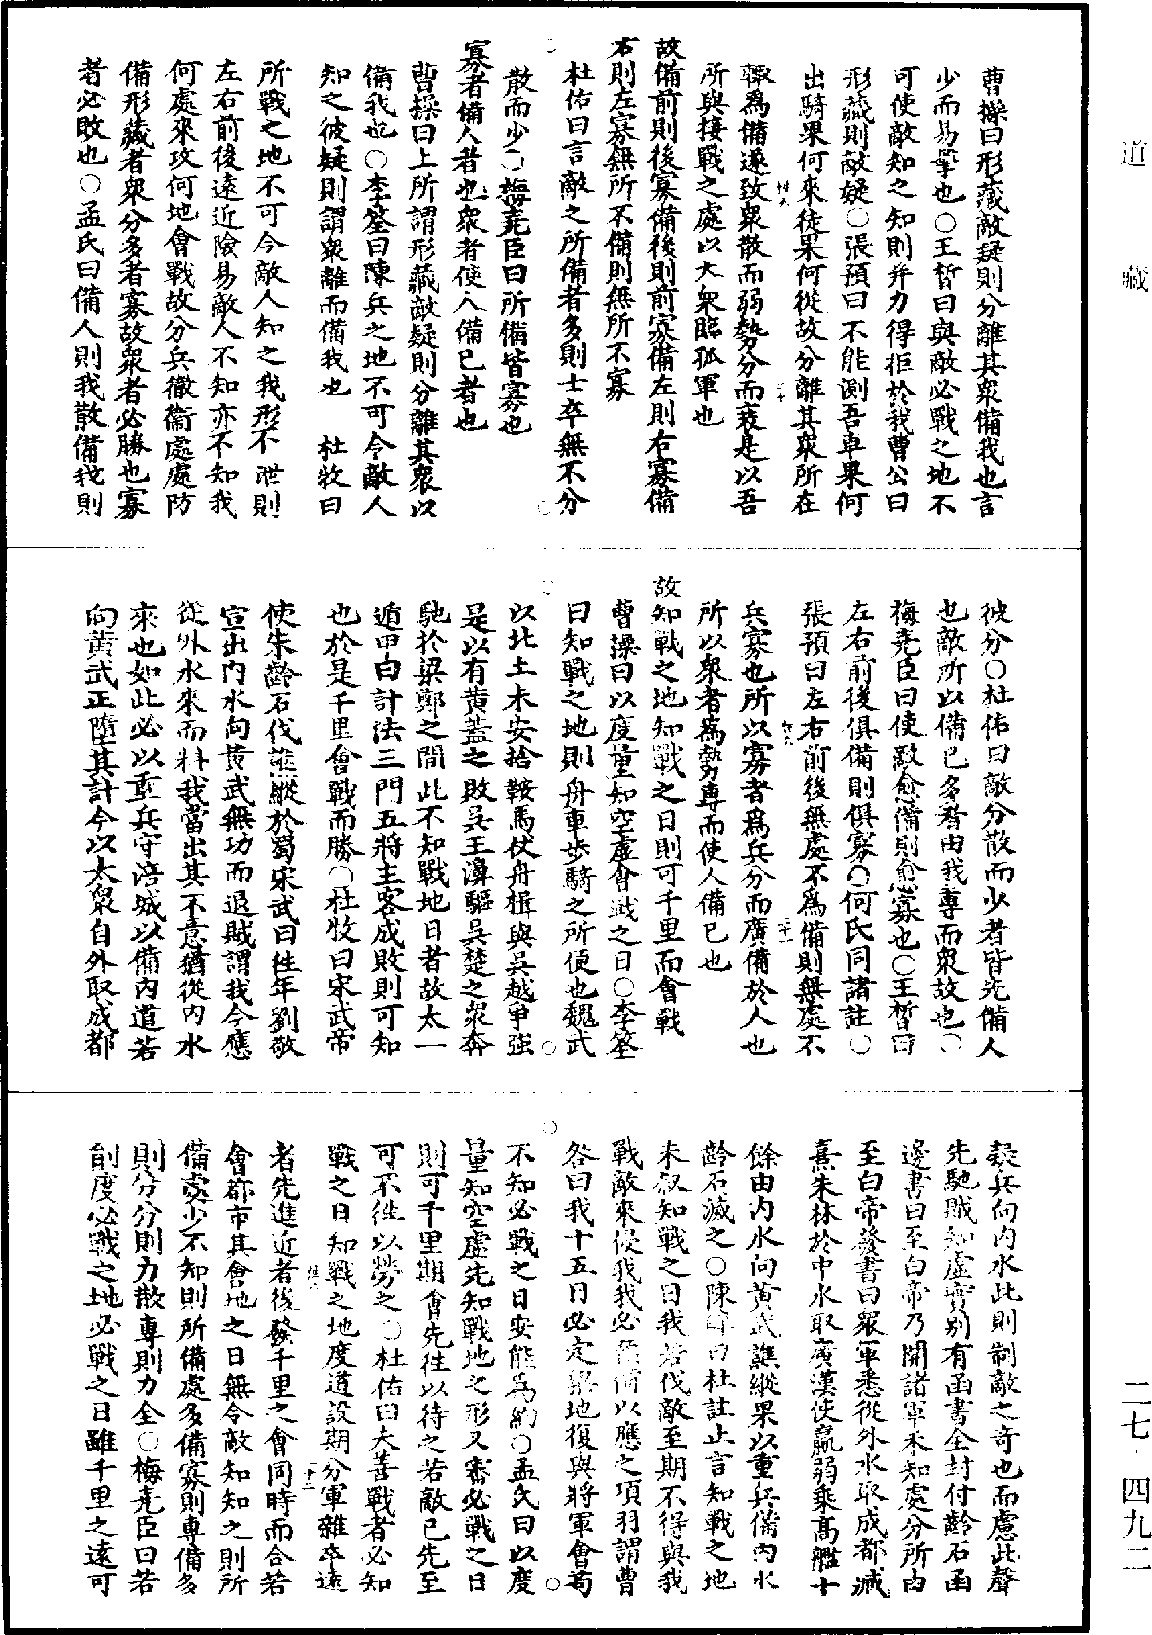 曹操曰形藏敵疑則分離其衆備我也言
少而易擊也○王晳曰與敵必戰之地不
可使敵知之知則并力得拒於我曹公曰
形藏則敵疑○張預曰不能測吾車果何
出騎果何來徒果何從故分離其衆所在
輒爲備遂致衆散而弱勢分而衰是以吾
所與接戰之處以大衆臨孤軍也
故備前則後寡備後則前寡備左則右寡備
右則左寡無所不備則無所不寡
杜佑曰言敵之所備者多則士卒無不分
散而少○梅堯臣曰所備皆寡也
寡者備人者也衆者使人備己者也
曹操曰上所謂形藏敵疑則分離其衆以
備我也○李筌曰陳兵之地不可令敵人
知之彼疑則謂衆離而備我也 杜牧曰
所戰之地不可令敵人知之我形不泄則
左右前後遠近險易敵人不知亦不知我
何處來攻何地會戰故分兵徹衞處處防
備形藏者衆分多者寡故衆者必勝也寡
者必敗也○孟氏曰備人則我散備我則
彼分○杜佑曰敵分散而少者皆先備人
也敵所以備己多者由我專而衆故也○
梅堯臣曰使敵愈備則愈寡也○王晳曰
左右前後俱備則俱寡○何氏同諸註○
張預曰左右前後無處不爲備則無處不
兵寡也所以寡者爲兵分而廣備於人也
所以衆者爲勢專而使人備己也
故知戰之地知戰之日則可千里而會戰
曹操曰以度量知空虛會戰之日○李筌
曰知戰之地則舟車步騎之所便也魏武
以北土未安捨鞍馬仗舟楫與吳越爭強
是以有黃蓋之敗吳王濞驅吳楚之衆奔
馳於梁鄭之間此不知戰地日者故太一
遁甲曰計法三門五將主客成敗則可知
也於是千里會戰而勝○杜牧曰宋武帝
使朱齡石伐譙縱於蜀宋武曰往年劉敬
宣出內水向黃武無功而退賊謂我今應
從外水來而料我當出其不意猶從內水
來也如此必以重兵守涪城以備內道若
向黃武正墮其計今以大衆自外取成都
疑兵向內水此則制敵之奇也而慮此聲
先馳賊知虛實別有函書全封付齡石函
邊書曰至白帝乃開諸軍未知處分所由
至白帝發書曰衆軍悉從外水取成都臧
熹朱林於中水取廣漢使羸弱乘高艦十
餘由內水向黃武譙縱果以重兵備內水
齡石滅之○陳皥曰杜註止言知戰之地
未叙知戰之日我若伐敵至期不得與我
戰敵來侵我我必預備以應之項羽謂曹
咎曰我十五日必定梁地復與將軍會苟
不知必戰之日安能爲約○孟氏曰以度
量知空虛先知戰地之形又審必戰之日
則可千里期會先往以待之若敵已先至
可不往以勞之○杜佑曰夫善戰者必知
戰之日知戰之地度道設期分軍雜卒遠
者先進近者後發千里之會同時而合若
會都市其會地之日無令敵知知之則所
備處少不知則所備處多備寡則專備多
則分分則力散專則力全○梅堯臣曰若
能度必戰之地必戰之日雖千里之遠可
道藏
二七·四九二